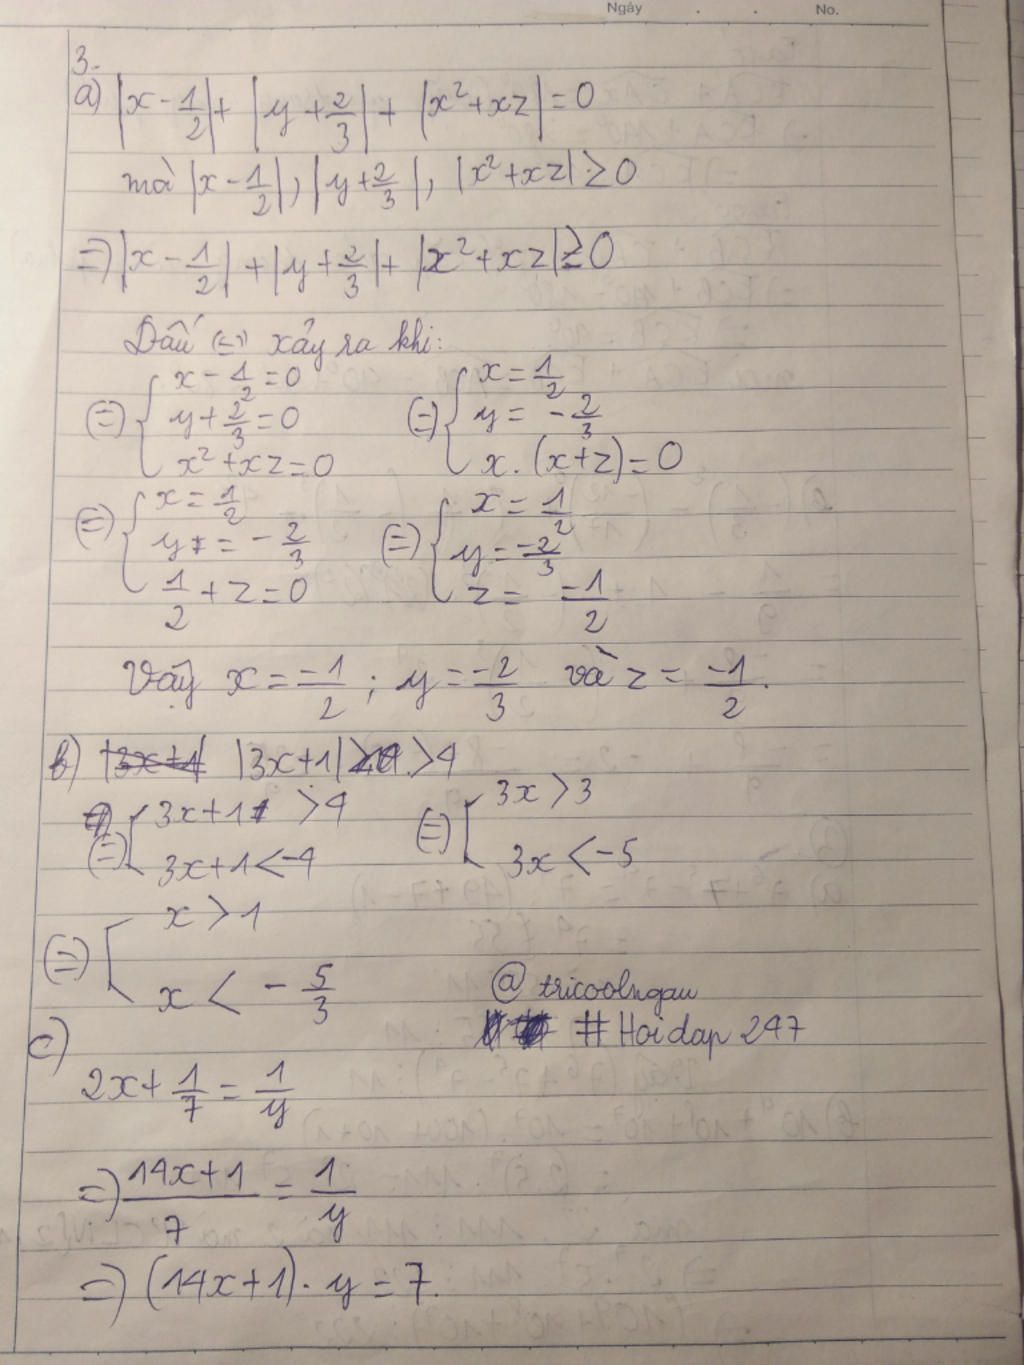 Ngày . . No.
3.
a) |x - 1/2| + |y + 2/3| + |x² + xz| = 0
mà |x - 1/2|, |y + 2/3|, |x² + xz| ≥ 0
=> |x - 1/2| + |y + 2/3| + |x² + xz| ≥ 0
Dấu (=) xảy ra khi:
(=) { x - 1/2 = 0 (=) { x = 1/2
y + 2/3 = 0 y = - 2/3
x² + xz = 0 x. (x+z) = 0
(=) { x = 1/2 (=) { x = 1/2
y = - 2/3 y = -2/3
1/2 + z = 0 z = -1/2
Vậy x = -1/2 ; y = -2/3 và z = -1/2.
b) |3x+1| |3x+1| > 4
(=) [ 3x+1 > 4 (=) [ 3x > 3
3x+1 < -4 3x < -5
(=) [ x > 1
x < - 5/3
@ tricoolngau
# Hoidap 247
c)
2x + 1/7 = 1/y
=> 14x+1/7 = 1/y
=> (14x+1). y = 7.